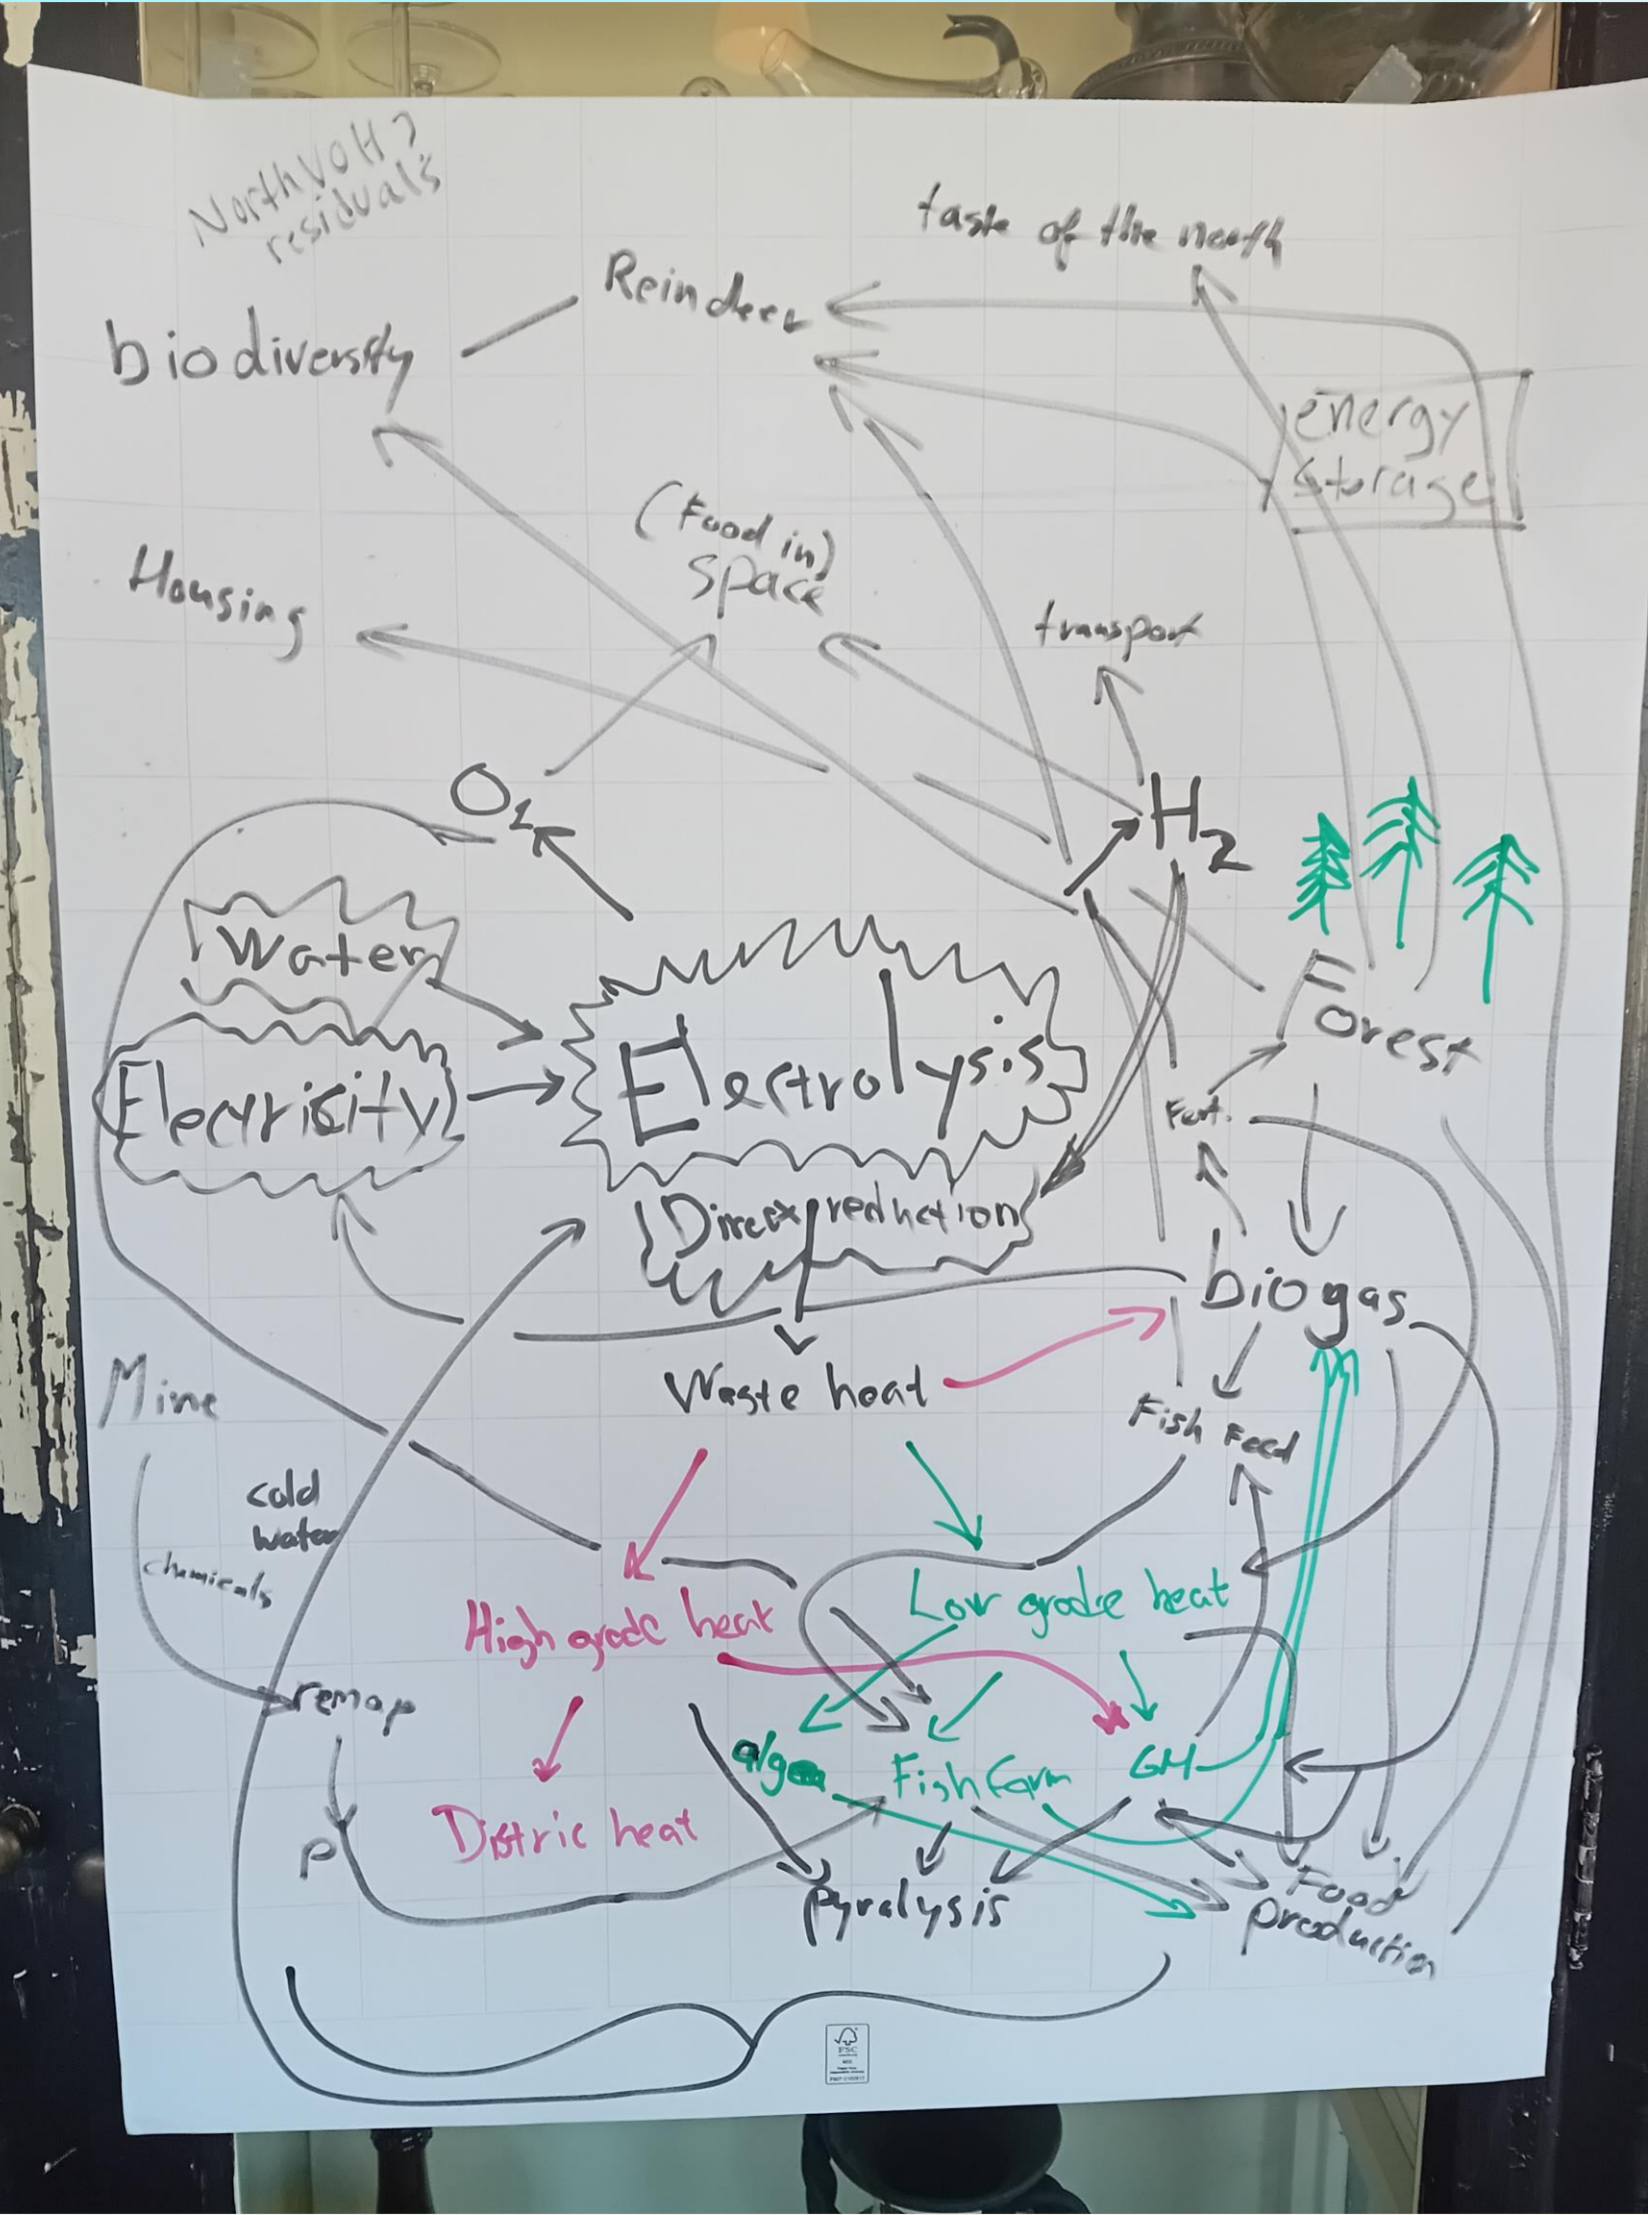 residuals
taste of the north
Reindeer
biodiversity
energy
storage
(Food in)
space
Housing
transport
O2
H2
Water
Forest
Electricity
Electrolysis
Fert.
Direct reduction
biogas
Waste heat
Mine
Fish Feed
cold
water
chemicals
Low grade heat
High grade heat
remap
algea
Fish farm
GH
Distric heat
P
pyralysis
Food
production
FSC